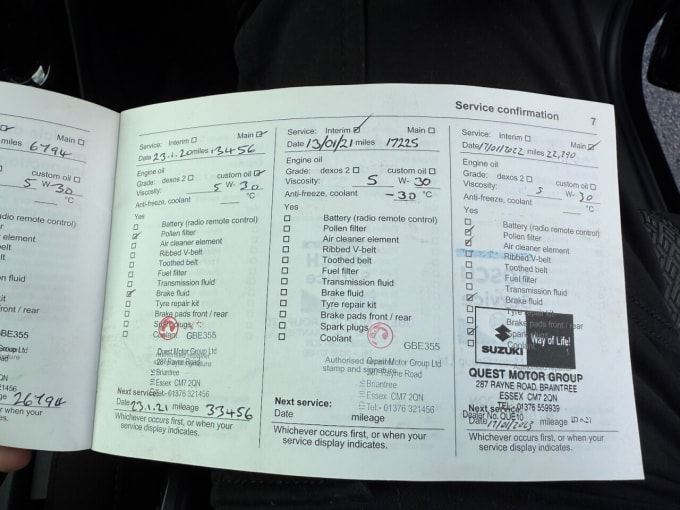 Service confirmation 7
Main ☑
miles 6794
custom oil
5 W-30
°C
dio remote control)
element
elt
elt
n fluid
it
front / rear
BE355
Group Ltd
signature
21456
26794
or when your
Service: Interim ☐ Main ☑
Date 23.1.20 miles 13456
Engine oil
Grade: dexos 2 ☐ custom oil ☑
Viscosity: 5 W- 30
Anti-freeze, coolant °C
Yes
☐ Battery (radio remote control)
☑ Pollen filter
☐ Air cleaner element
☐ Ribbed V-belt
☐ Toothed belt
☐ Fuel filter
☐ Transmission fluid
☑ Brake fluid
☐ Tyre repair kit
☐ Brake pads front / rear
☐ Spark plugs
☐ Coolant GBE355
Quest Motor Group Ltd
287 Rayne Road
Braintree
Essex CM7 2QN
Tel:- 01376 321456
Next service:
Date 23.1.21 mileage 33456
Whichever occurs first, or when your
service display indicates.
Service: Interim ☑ Main ☐
Date 13/01/21 miles 17225
Engine oil
Grade: dexos 2 ☐ custom oil ☐
Viscosity: 5 W- 30
Anti-freeze, coolant -30 °C
Yes
☐ Battery (radio remote control)
☐ Pollen filter
☐ Air cleaner element
☐ Ribbed V-belt
☐ Toothed belt
☐ Fuel filter
☐ Transmission fluid
☐ Brake fluid
☐ Tyre repair kit
☐ Brake pads front / rear
☐ Spark plugs
☐ Coolant GBE355
Authorised
stamp and signature
Quest Motor Group Ltd
287 Rayne Road
Braintree
Essex CM7 2QN
Tel:- 01376 321456
Next service:
Date mileage
Whichever occurs first, or when your
service display indicates.
Service: Interim ☐ Main ☑
Date 17/01/2022 miles 22,290
Engine oil
Grade: dexos 2 ☐ custom oil ☐
Viscosity: 5 W- 30
Anti-freeze, coolant °C
Yes
☐ Battery (radio remote control)
☑ Pollen filter
☑ Air cleaner element
☐ Ribbed V-belt
☐ Toothed belt
☐ Fuel filter
☐ Transmission fluid
☑ Brake fluid
☐ Tyre repair kit
Brake pads front / rear
☑ Spark
SUZUKI Way of Life!
QUEST MOTOR GROUP
287 RAYNE ROAD, BRAINTREE
ESSEX CM7 2QN
TEL: 01376 559939
Dealer No. QUE10
Next service:
Date 17/01/2023 mileage
Whichever occurs first, or when your
service display indicates.